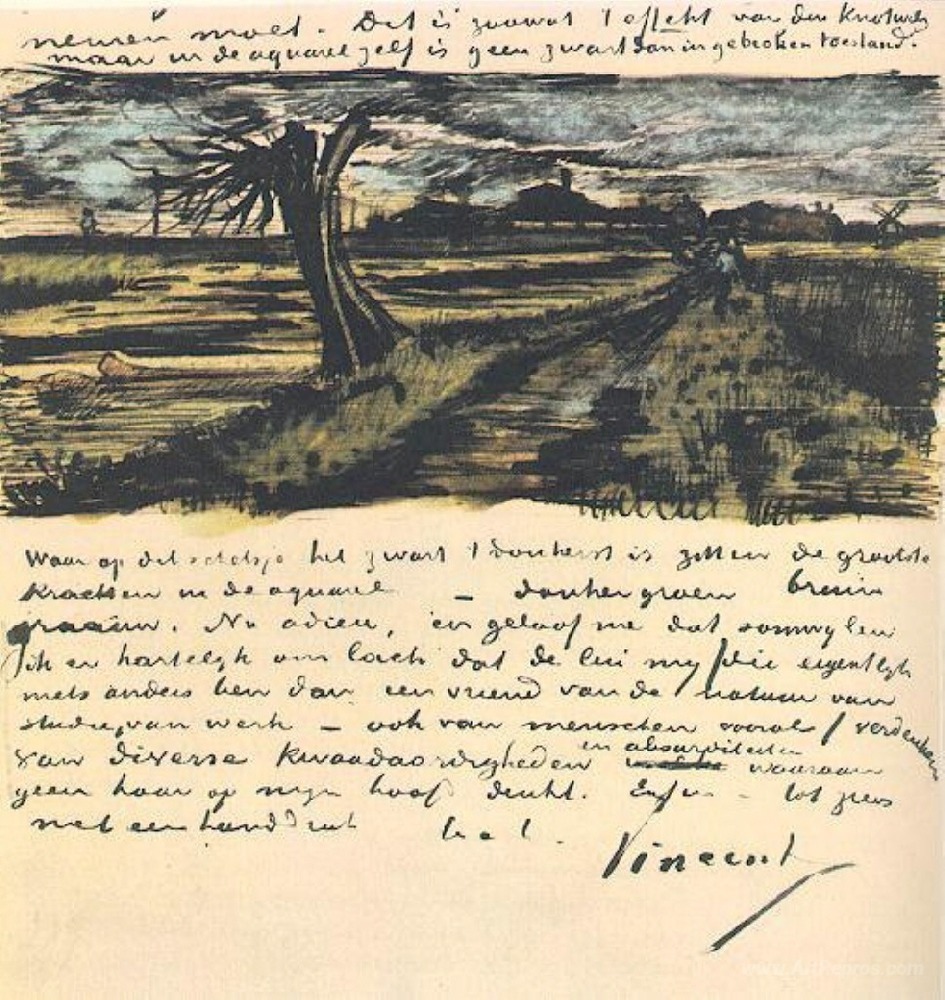 nemen moet. Dit is zoowat 't effekt van den Knotwilg
maar in de aquarel zelf is geen zwart dan in gebroken toestand.
Waar op dit schetsje het zwart 't donkerst is zitten de grootste
krachten in de aquarel – donkergroen bruin
graauw. Nu adieu, en geloof me dat somwylen
ik er hartelyk om lach dat de lui my /die eigentlyk
niets anders ben dan een vriend van de natuur van
studie, van werk – ook van menschen vooral/ verdenken
van diverse kwaadaardigheden en absurditeiten waaraan
geen haar op myn hoofd denkt. Enfin – tot ziens
met een handdruk
Vincent